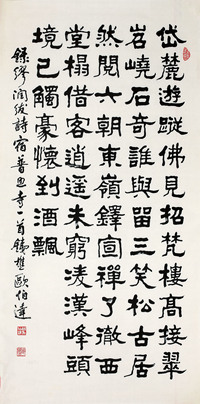 岱麓遊蹤佛見招梵樓高接翠
岧嶢石奇誰與留三笑松古居
然閱六朝東嶺鐸宣禪了徹西
堂榻借客逍遙未窮凌漢峰頭
境已觸豪懷到酒飄
錄繆潤紱詩宿普照寺一首鐵樵歐伯達